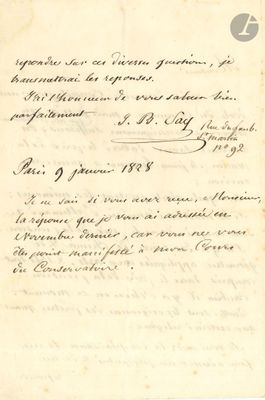 repondre sur ces diverses questions, je
transmettrai les reponses.
J'ai l'honneur de vous saluer bien
parfaitement
J. B. Say
Rue du faub.
St martin
n° 92
Paris 9 janvier 1828
Je ne sais si vous avez reçu, Monsieur,
la réponse que je vous ai adressée en
Novembre dernier, car vous ne vous
êtes point manifesté à mon Cours
du Conservatoire.